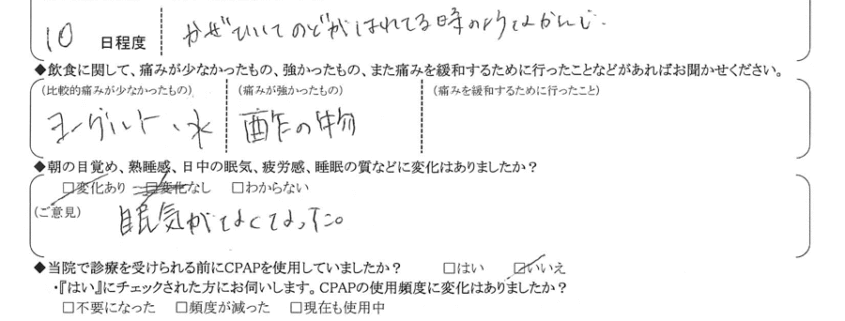 10 日程度 かぜひいてのどがはれてる時のようなかんじ.
◆飲食に関して、痛みが少なかったもの、強かったもの、また痛みを緩和するために行ったことなどがあればお聞かせください。
(比較的痛みが少なかったもの) (痛みが強かったもの) (痛みを緩和するために行ったこと)
ヨーグルト、水 酢の物
◆朝の目覚め、熟睡感、日中の眠気、疲労感、睡眠の質などに変化はありましたか?
□変化あり □変化なし □わからない
(ご意見) 眠気がなくなった。
◆当院で診療を受けられる前にCPAPを使用していましたか? □はい □いいえ
・『はい』にチェックされた方にお伺いします。CPAPの使用頻度に変化はありましたか?
□不要になった □頻度が減った □現在も使用中